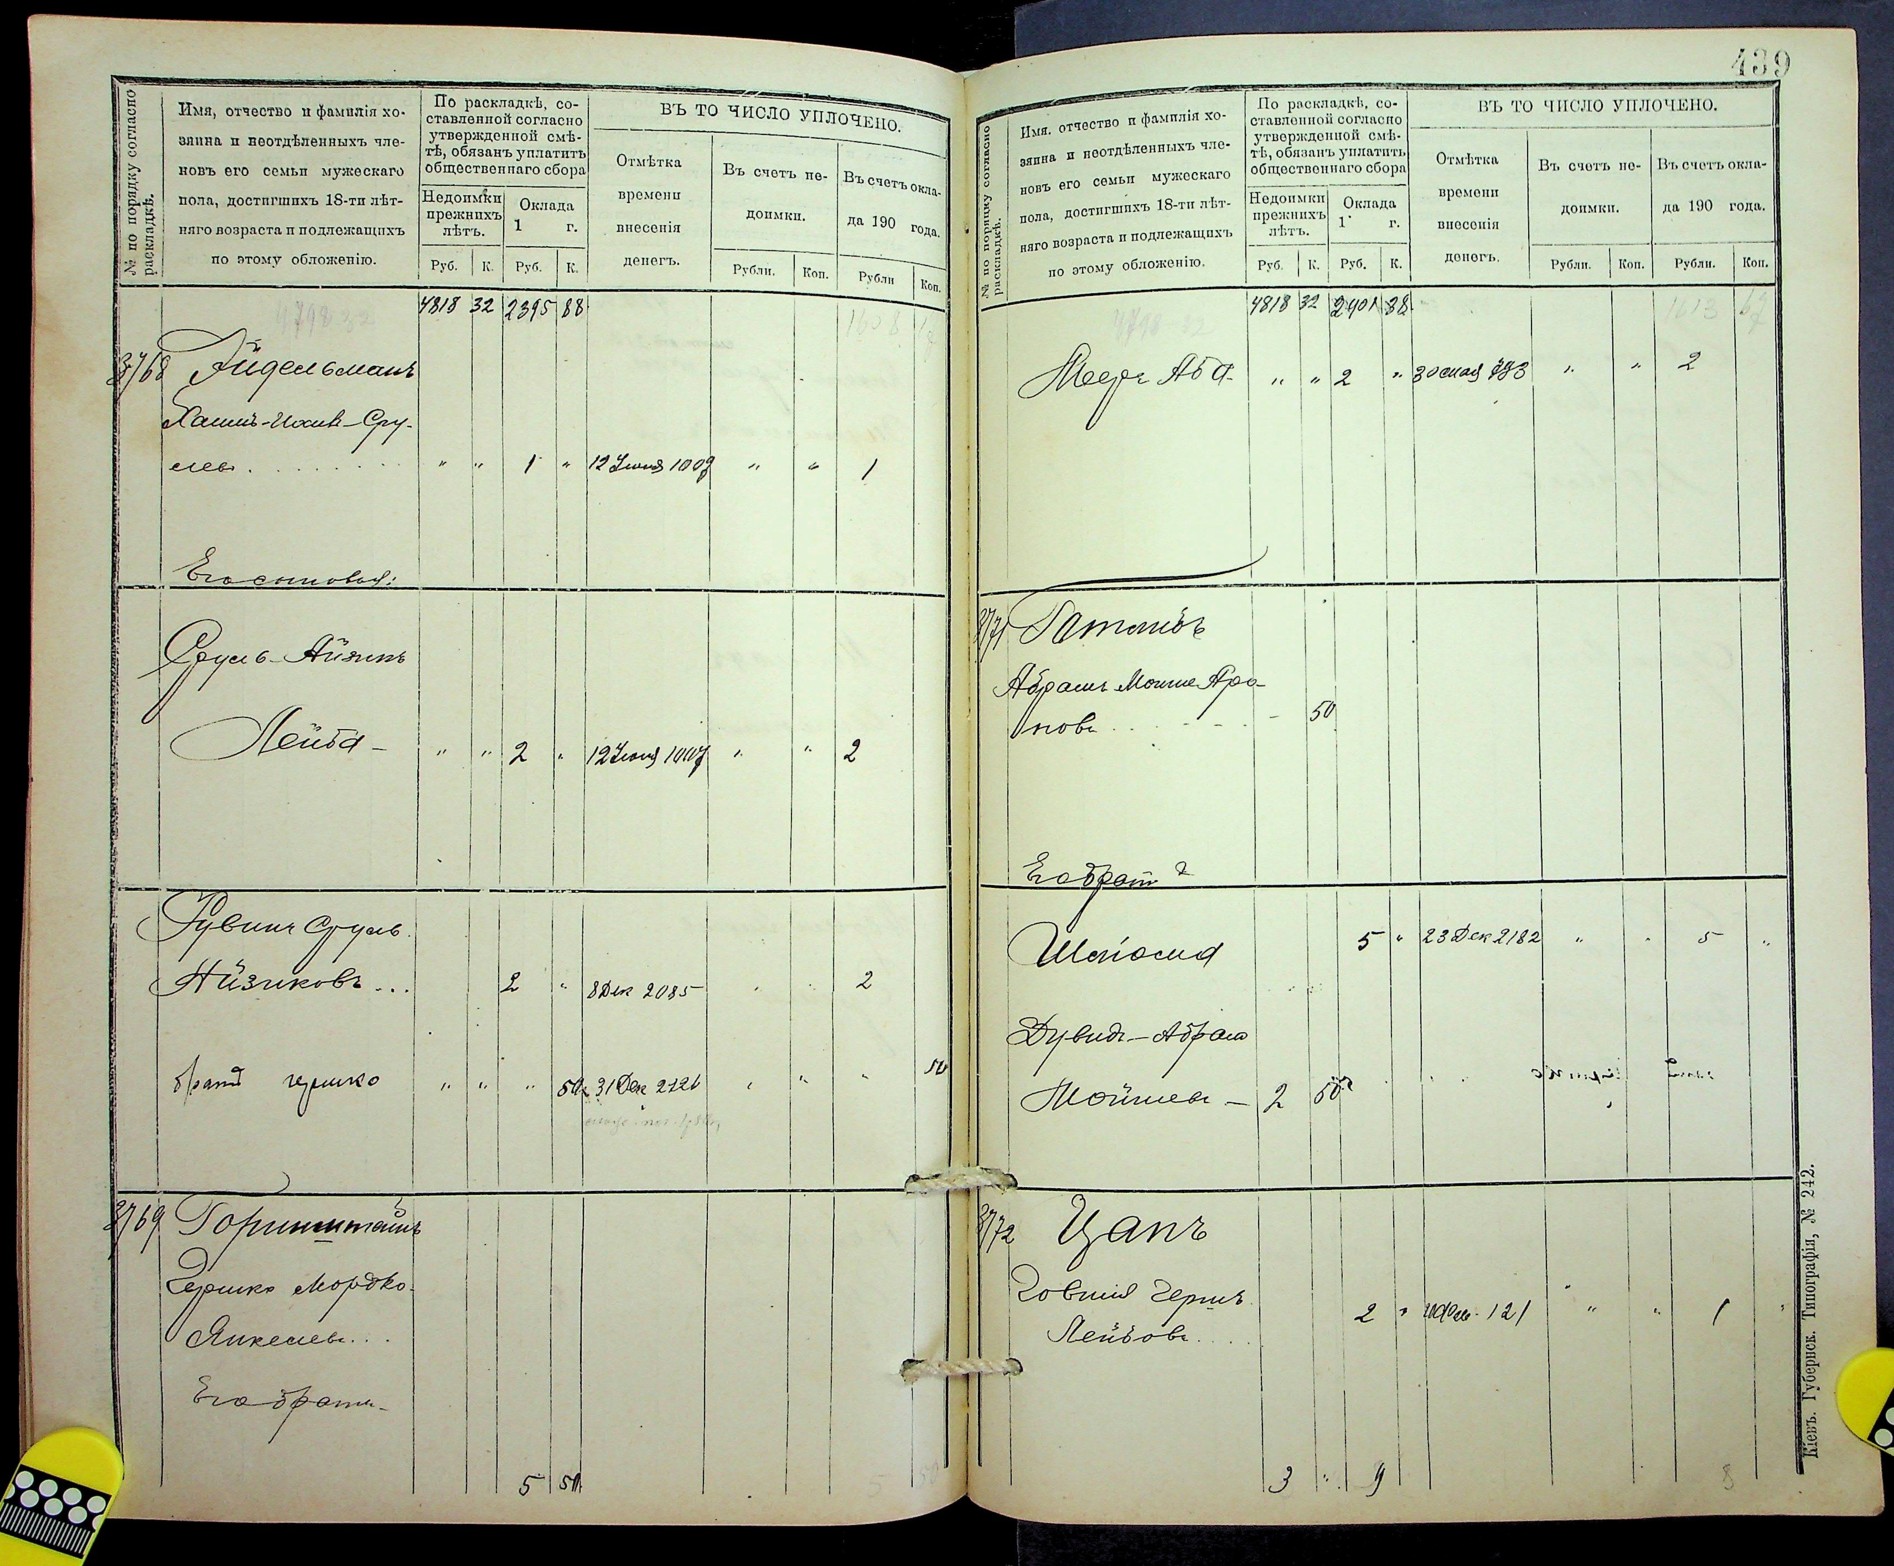 439
№ по порядку согласно раскладкѣ.
Имя, отчество и фамилія хо-
зяина и неотдѣленныхъ чле-
новъ его семьи мужескаго
пола, достигшихъ 18-ти лѣт-
няго возраста и подлежащихъ
по этому обложенію.
По раскладкѣ, со-
ставленной согласно
утвержденной смѣ-
тѣ, обязанъ уплатить
общественнаго сбора
Недоимки
прежнихъ
лѣтъ.
Оклада
1 г.
Руб. К. Руб. К.
ВЪ ТО ЧИСЛО УПЛОЧЕНО.
Отмѣтка
времени
внесенія
денегъ.
Въ счетъ не-
доимки.
Въ счетъ окла-
да 190 года.
Рубли. Коп. Рубли Коп.
4818 32 2395 88
3768 Айдельманъ
Хаимъ-Иосивъ-Сру-
левъ . . . . . . . . " " 1 " 12 Іюня 1007 " " 1
Его сыновья:
Сруль-Айзикъ
Лейба - " " 2 " 12 Іюня 1007 " " 2
Рувинъ Сруль
Айзиковъ ... 2 " 8 Дек 2085 2
братъ гершко " " " 50 31 Дек 2121 " " " 50
3769 Горинштейнъ
Гершко Мордко
Янкелевъ...
Его братъ-
5 50
№ по порядку согласно раскладкѣ.
Имя, отчество и фамилія хо-
зяина и неотдѣленныхъ чле-
новъ его семьи мужескаго
пола, достигшихъ 18-ти лѣт-
няго возраста и подлежащихъ
по этому обложенію.
По раскладкѣ, со-
ставленной согласно
утвержденной смѣ-
тѣ, обязанъ уплатить
общественнаго сбора
Недоимки
прежнихъ
лѣтъ.
Оклада
1 г.
Руб. К. Руб. К.
ВЪ ТО ЧИСЛО УПЛОЧЕНО.
Отмѣтка
времени
внесенія
денегъ.
Въ счетъ не-
доимки.
Въ счетъ окла-
да 190 года.
Рубли. Коп. Рубли. Коп.
4818 32 2401 38
Меер Аба - " " 2 " 30 мая 793 " " 2
3771
Абрамъ Мошко Аро-
новъ . . - - - - 50
Его братъ
Шлиома 5 " 23 Дек 2182 " " 5 "
Дувидъ-Абрам
Мойшевъ - 2 50
3772 Цапъ
Говшия Гершъ
Лейбовъ . . . . 2 " 121 " " 1 "
3 " 9 8
Кіевъ. Губернск. Типографія, № 242.